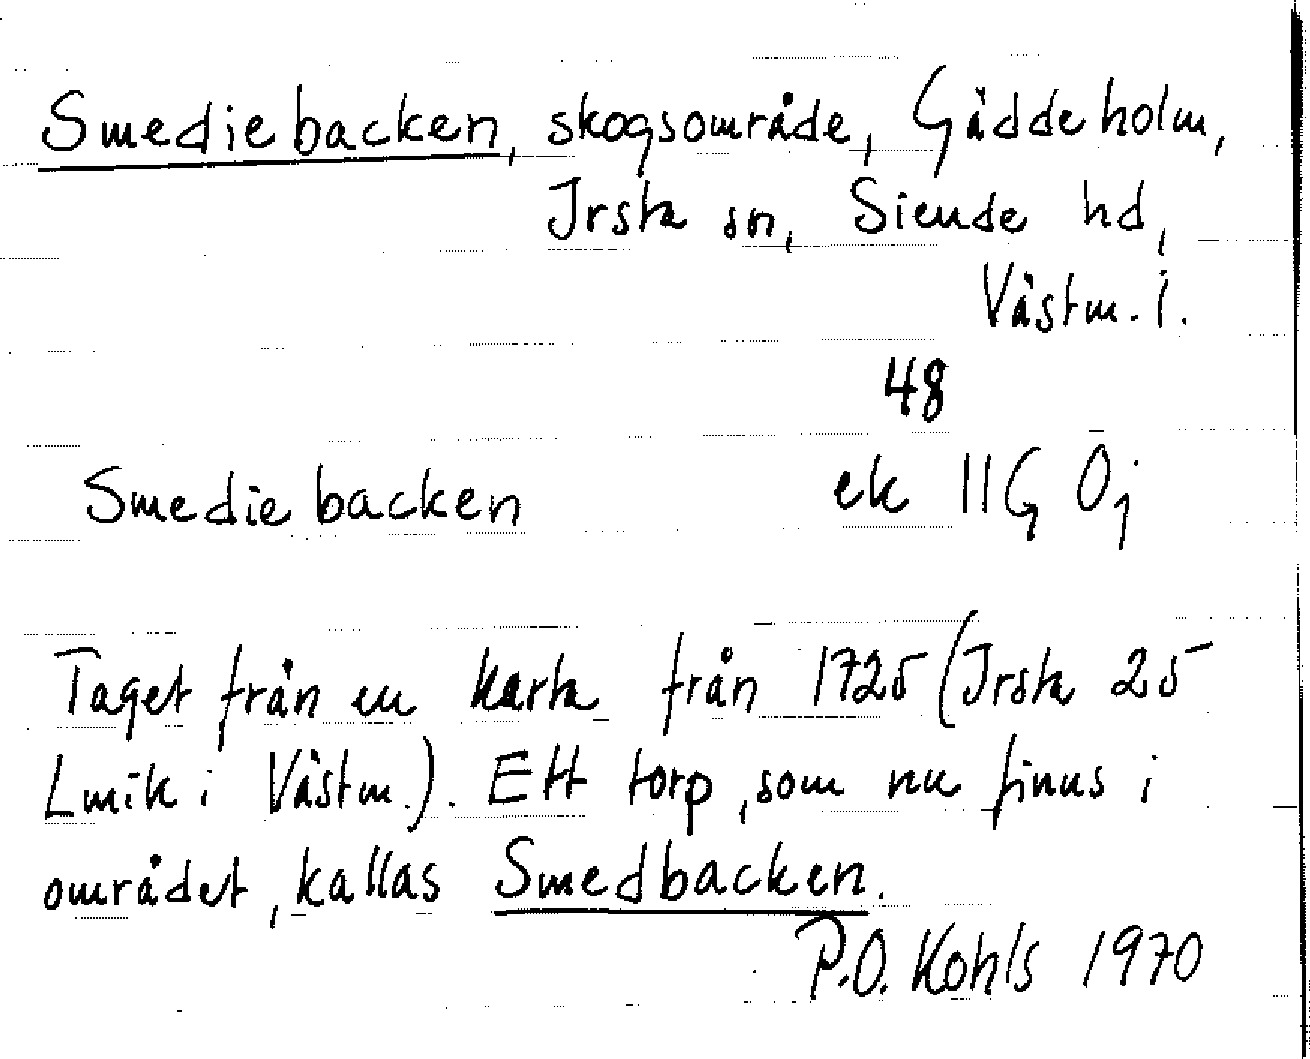 Smediebacken, skogsområde, Gäddeholm,
Irsta sn, Siende hd,
Västm. l.
48
Smediebacken ek 11G 0j
Taget från en karta från 1725 (Irsta 25
Lmik i Västm.). Ett torp, som nu finns i
området, kallas Smedbacken.
P.O. Kohls 1970